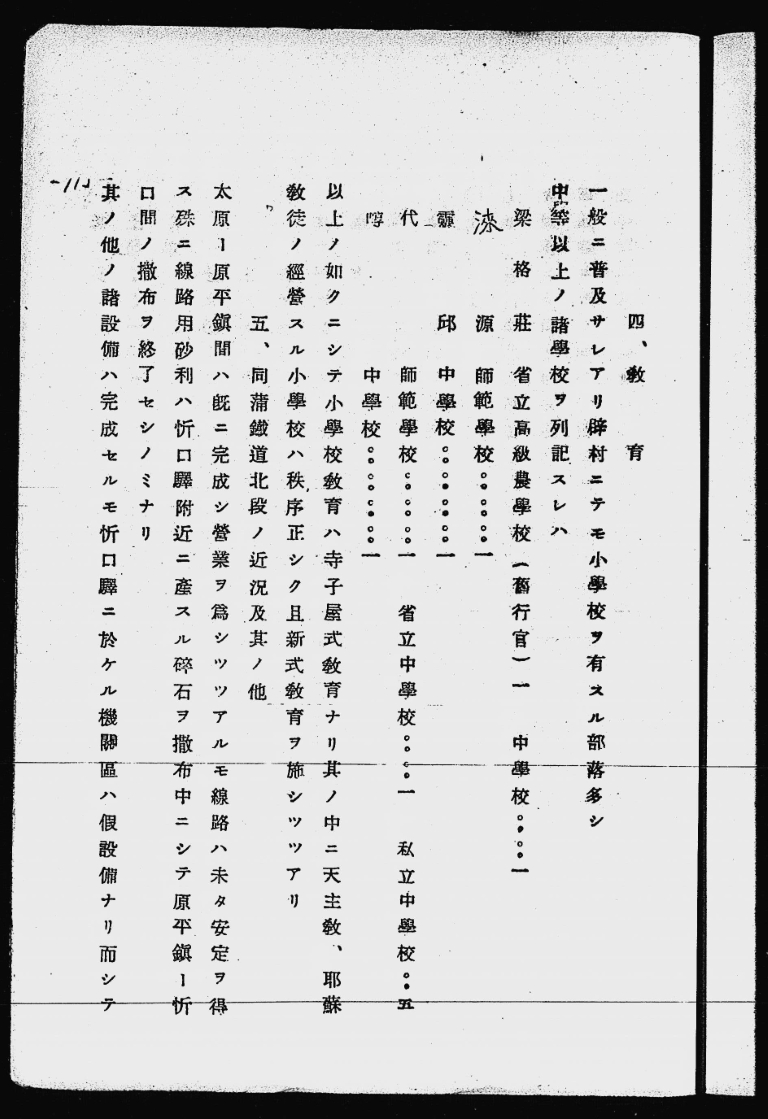 四、教育
一般ニ普及サレアリ僻村ニテモ小學校ヲ有スル部落多シ
中等以上ノ諸學校ヲ列記スレハ
梁格莊 省立高級農學校(舊行官)一 中學校。。。。一
渁源 師範學校。。。。。。一
靈邱 中學校。。。。。。。一
代 師範學校。。。。。一 省立中學校。。。。一 私立中學校。。五
崞 中學校。。。。。。。一
以上ノ如クニシテ小學校教育ハ寺子屋式教育ナリ其ノ中ニ天主教、耶蘇
教徒ノ經營スル小學校ハ秩序正シク且新式教育ヲ施シツツアリ
五、同蒲鐵道北段ノ近況及其ノ他
太原ー原平鎭間ハ既ニ完成シ營業ヲ爲シツツアルモ線路ハ未タ安定ヲ得
ス殊ニ線路用砂利ハ忻口驛附近ニ產スル碎石ヲ撒布中ニシテ原平鎭ー忻
口間ノ撒布ヲ終了セシノミナリ
其ノ他ノ諸設備ハ完成セルモ忻口驛ニ於ケル機關區ハ假設備ナリ而シテ